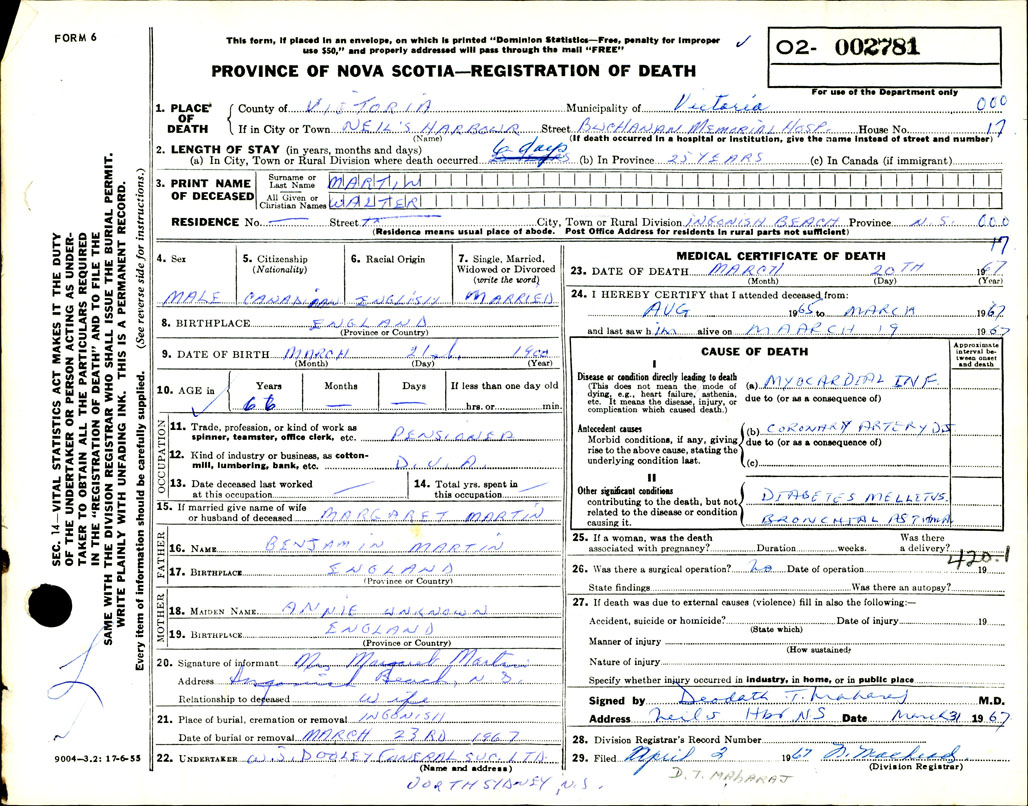 FORM 6
This form, if placed in an envelope, on which is printed "Dominion Statistics—Free, penalty for improper
use $50," and properly addressed will pass through the mail "FREE"
PROVINCE OF NOVA SCOTIA—REGISTRATION OF DEATH
02- 002781
For use of the Department only
000
17
1. PLACE OF DEATH
County of VICTORIA Municipality of Victoria
If in City or Town NEIL'S HARBOUR Street BUCHANAN MEMORIAL HOSP. House No.
(Name) (If death occurred in a hospital or Institution, give the name instead of street and number)
2. LENGTH OF STAY (in years, months and days)
(a) In City, Town or Rural Division where death occurred 6 days (b) In Province 25 YEARS (c) In Canada (if immigrant)
3. PRINT NAME OF DECEASED
Surname or Last Name MARTIN
All Given or Christian Names WALTER
RESIDENCE No. — Street City, Town or Rural Division INGONISH BEACH Province N.S. 000
(Residence means usual place of abode. Post Office Address for residents in rural parts not sufficient)
17
4. Sex
MALE
5. Citizenship
(Nationality)
CANADIAN
6. Racial Origin
ENGLISH
7. Single, Married,
Widowed or Divorced
(write the word)
MARRIED
8. BIRTHPLACE ENGLAND
(Province or Country)
9. DATE OF BIRTH MARCH 21st 1900
(Month) (Day) (Year)
10. AGE in
Years Months Days If less than one day old
66 — — hrs. or min.
OCCUPATION
11. Trade, profession, or kind of work as
spinner, teamster, office clerk, etc. PENSIONER
12. Kind of industry or business, as cotton-
mill, lumbering, bank, etc. D.V.A.
13. Date deceased last worked
at this occupation —
14. Total yrs. spent in
this occupation —
15. If married give name of wife
or husband of deceased MARGARET MARTIN
FATHER
16. NAME BENJAMIN MARTIN
17. BIRTHPLACE ENGLAND
(Province or Country)
MOTHER
18. MAIDEN NAME ANNIE UNKNOWN
19. BIRTHPLACE ENGLAND
(Province or Country)
20. Signature of informant Mrs Margaret Martin
Address Ingonish Beach, N.S.
Relationship to deceased Wife
21. Place of burial, cremation or removal INGONISH
Date of burial or removal MARCH 23RD 1967
22. UNDERTAKER W.J. DOOLEY FUNERAL SVC LTD
(Name and address)
NORTH SYDNEY, N.S.
MEDICAL CERTIFICATE OF DEATH
23. DATE OF DEATH MARCH 20TH 1967
(Month) (Day) (Year)
24. I HEREBY CERTIFY that I attended deceased from:
AUG 1965 to MARCH 1967
and last saw him alive on MAARCH 19 1967
CAUSE OF DEATH
Approximate
interval be-
tween onset
and death
I
Disease or condition directly leading to death
(This does not mean the mode of
dying, e.g., heart failure, asthenia,
etc. It means the disease, injury, or
complication which caused death.)
(a) MYOCARDIAL INF.
due to (or as a consequence of)
Antecedent causes
Morbid conditions, if any, giving
rise to the above cause, stating the
underlying condition last.
(b) CORONARY ARTERY DS
due to (or as a consequence of)
(c)
II
Other significant conditions
contributing to the death, but not
related to the disease or condition
causing it.
DIABETES MELLETUS.
BRONCHIAL ASTHMA
25. If a woman, was the death
associated with pregnancy? Duration weeks. Was there
a delivery?
420.1
26. Was there a surgical operation? No Date of operation 19
State findings Was there an autopsy?
27. If death was due to external causes (violence) fill in also the following:—
Accident, suicide or homicide? Date of injury 19
(State which)
Manner of injury
(How sustained)
Nature of injury
Specify whether injury occurred in industry, in home, or in public place
Signed by Deodath T. Maharaj M.D.
Address Neil's Hbr NS Date March 31 1967
28. Division Registrar's Record Number
29. Filed April 2 1967
(Division Registrar)
D. T. MAHARAJ
SEC. 14—VITAL STATISTICS ACT MAKES IT THE DUTY
OF THE UNDERTAKER OR PERSON ACTING AS UNDER-
TAKER TO OBTAIN ALL THE PARTICULARS REQUIRED
IN THE "REGISTRATION OF DEATH" AND TO FILE THE
SAME WITH THE DIVISION REGISTRAR WHO SHALL ISSUE THE BURIAL PERMIT.
WRITE PLAINLY WITH UNFADING INK. THIS IS A PERMANENT RECORD.
Every item of information should be carefully supplied. (See reverse side for instructions.)
9004—3.2: 17-6-55